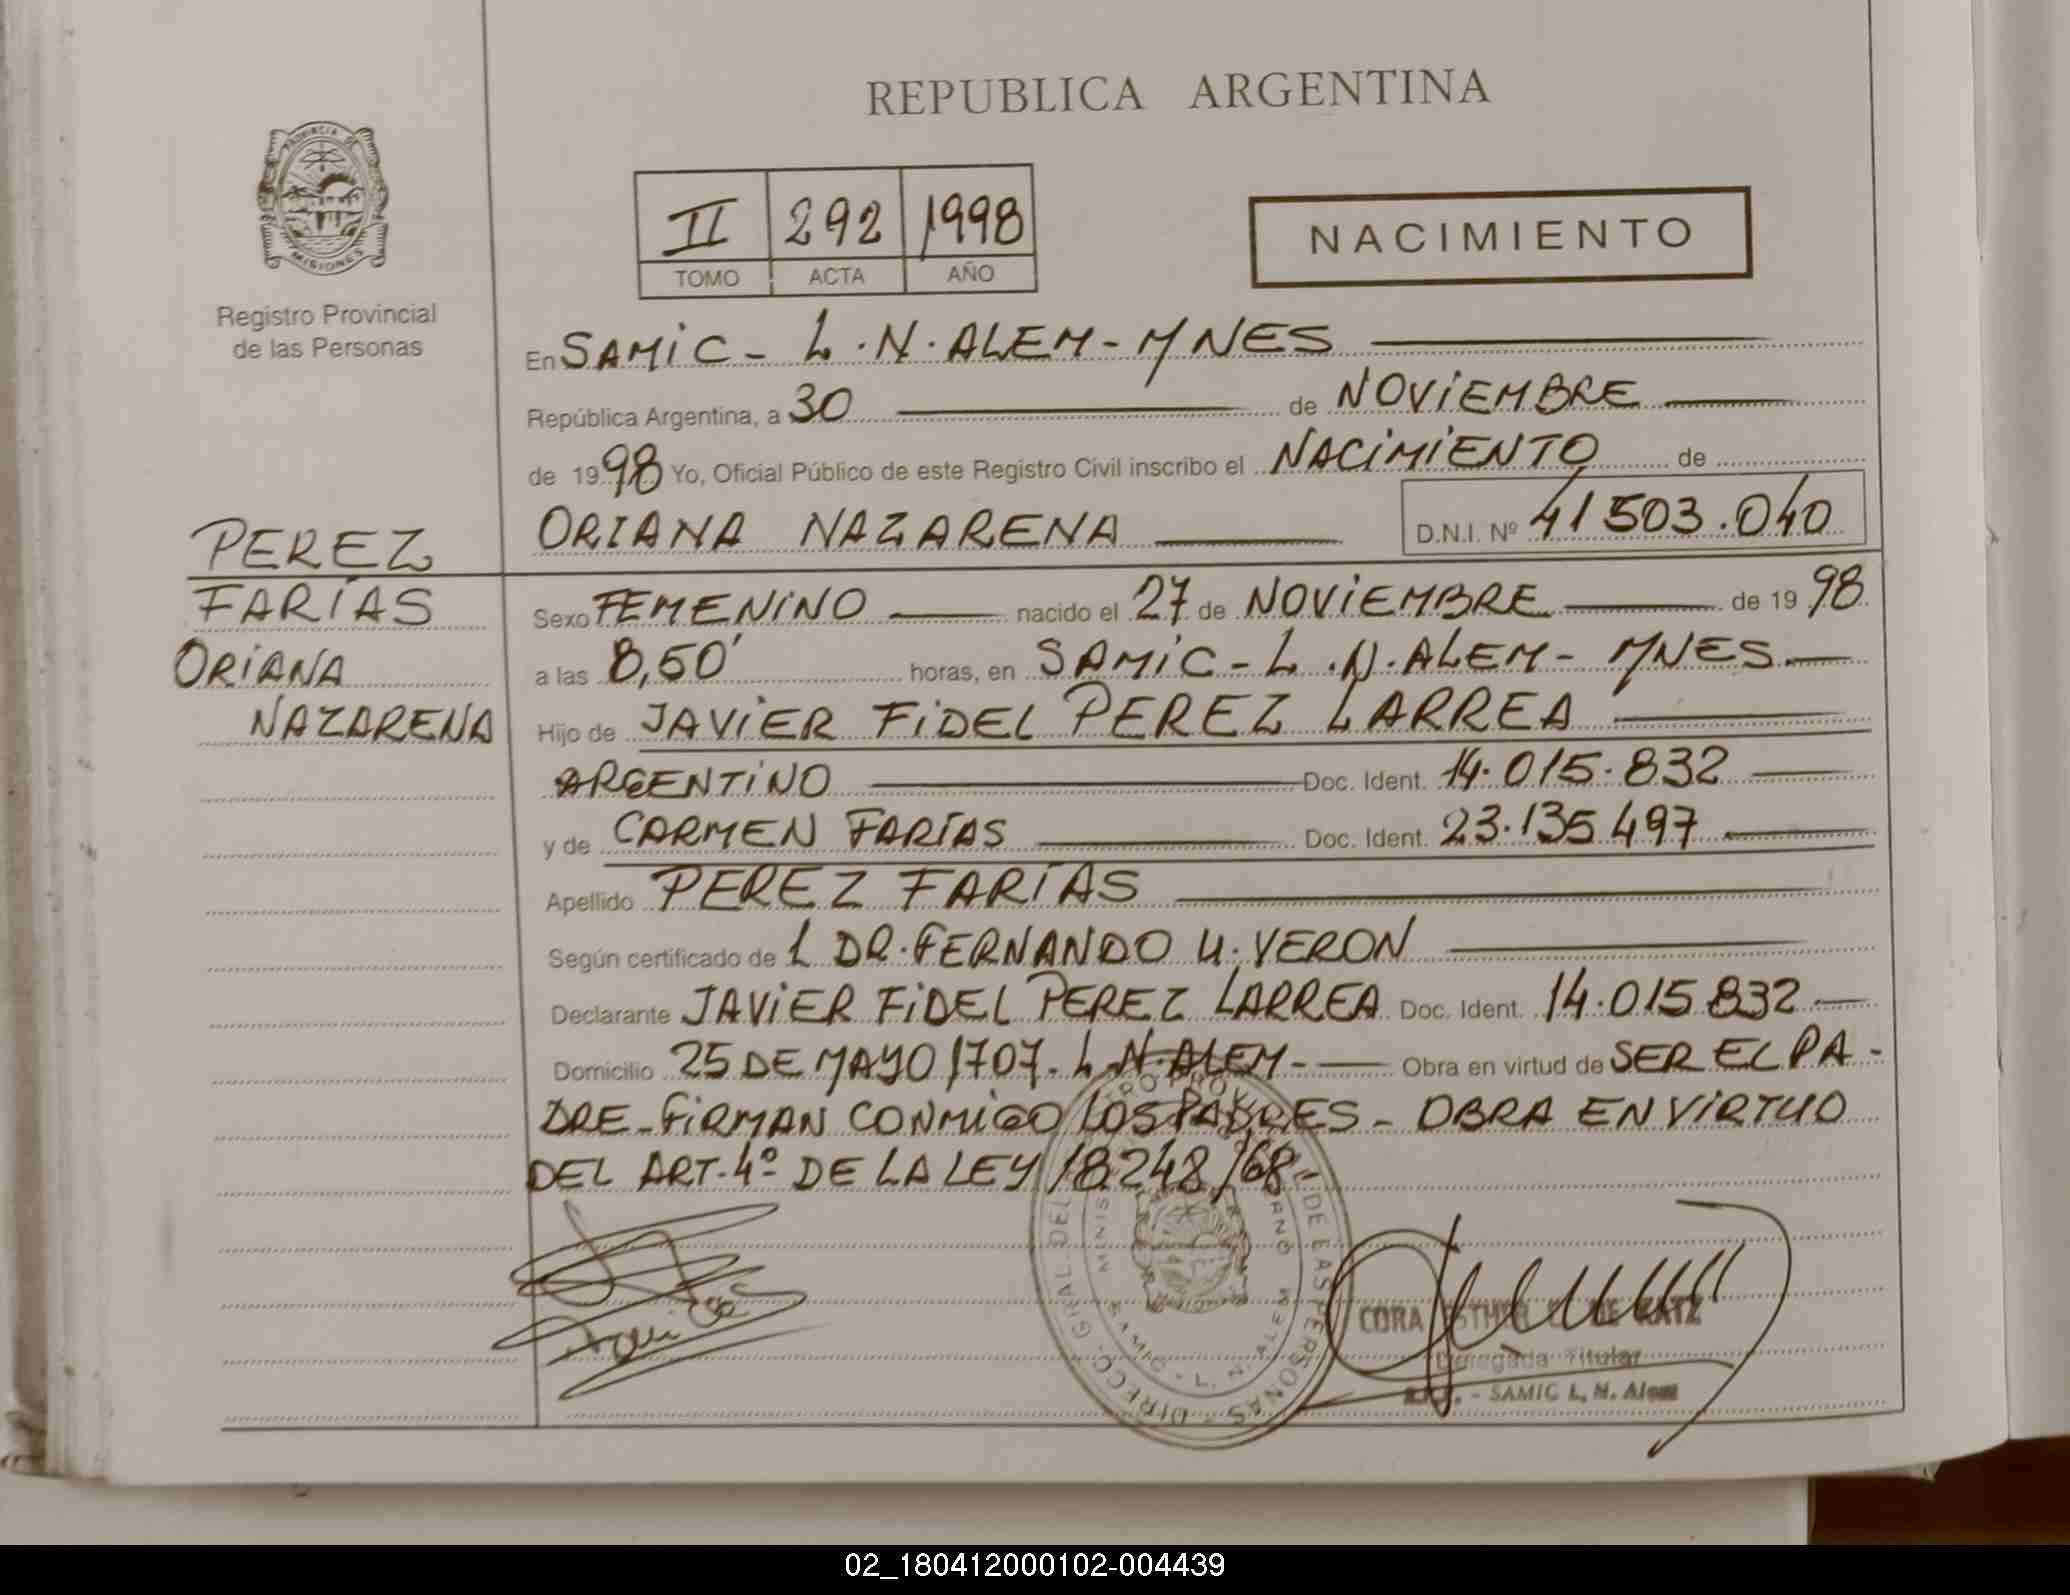 REPUBLICA ARGENTINA
PROVINCIA DE
MISIONES
Registro Provincial
de las Personas
II 292 1998
TOMO ACTA AÑO
NACIMIENTO
En SAMiC - L.N.ALEM - MNES
República Argentina, a 30 de NOViEMBRE
de 1998 Yo, Oficial Público de este Registro Civil inscribo el NACiMiENTO de
ORIANA NAZARENA D.N.I. Nº 41503.040
PEREZ
FARÍAS
ORiANA
NAZARENA
Sexo FEMENiNO nacido el 27 de NOViEMBRE de 1998
a las 8,50' horas, en SAMiC - L.N.ALEM - MNES
Hijo de JAViER FiDEL PEREZ LARREA
ARGENTiNO Doc. Ident. 14.015.832
y de CARMEN FARÍAS Doc. Ident. 23.135.497
Apellido PEREZ FARÍAS
Según certificado de L DR. FERNANDO U. VERON
Declarante JAViER FiDEL PEREZ LARREA Doc. Ident. 14.015.832
Domicilio 25 DE MAYO 1707 - L.N.ALEM - Obra en virtud de SER EL PA-
DRE - FiRMAN CONMiGO LOS PADRES - OBRA EN ViRTUD
DEL ART. 4º DE LA LEY 18248/68 -
DE LAS PERSONAS - DIRECC. GRAL. DEL
SAMIC - L. N. ALEM
CORA ESTHER DE KATZ
Delegada Titular
- SAMIC L. N. Alem
02_180412000102-004439